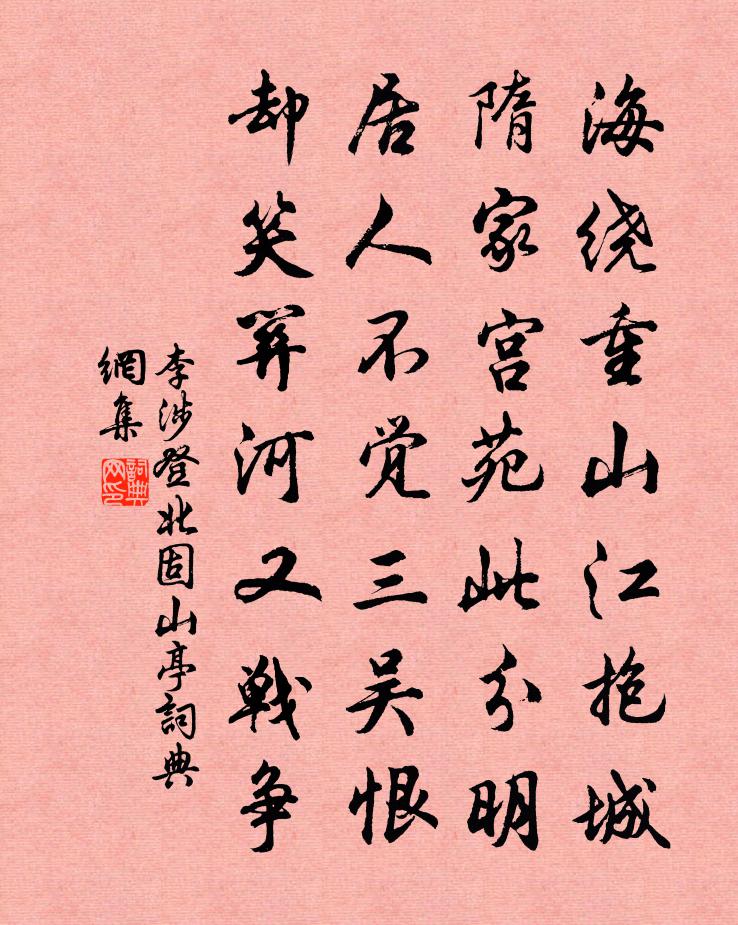 海绕重山江抱城
隋家宫苑此分明
居人不觉三吴恨
却笑关河又戰争
李涉登北固山亭詞典
網集
詞典
网印